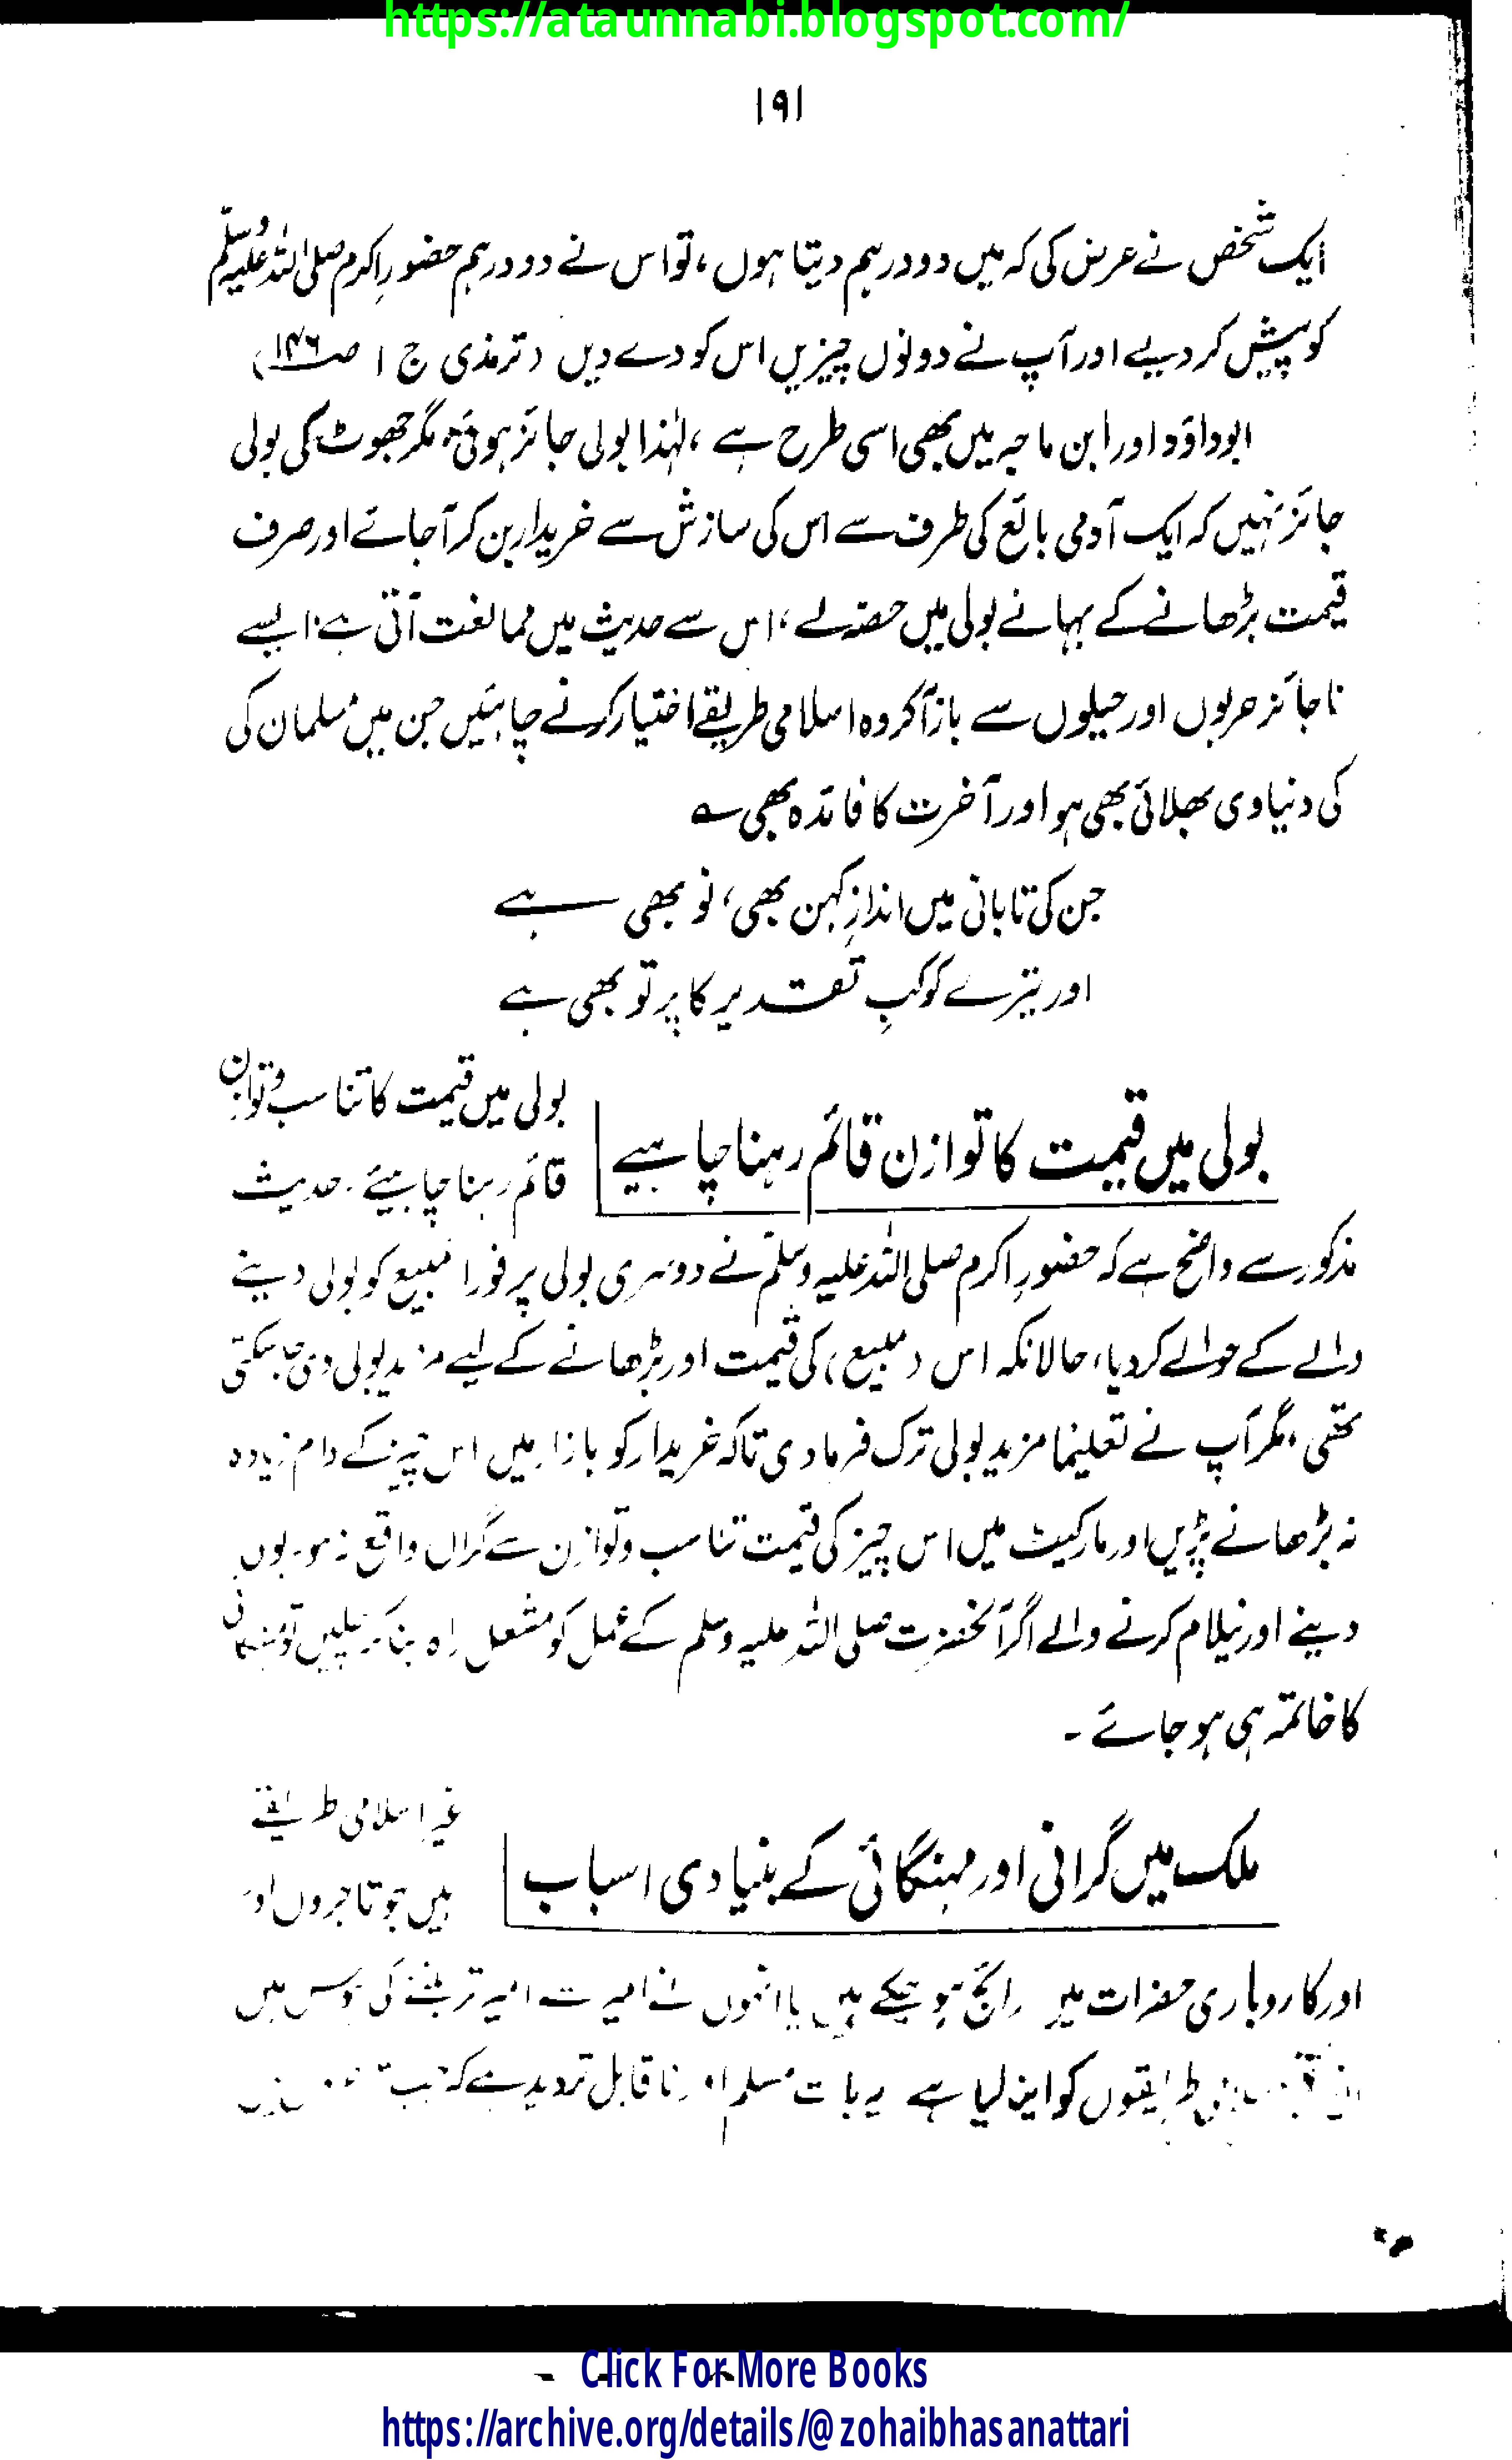 https://ataunnabi.blogspot.com/
۱۹۱
ایک شخص نے عرض کی کہ میں دو درہم دیتا ہوں، تو اس نے دو درہم حضورِ اکرم صلی اللہ علیہ وسلم
کو پیش کر دیے اور آپ نے دونوں چیزیں اس کو دے دیں (ترمذی ج ۱ ص۱۴۶)
ابوداؤد اور ابن ماجہ میں بھی اسی طرح ہے، لہٰذا بولی جائز ہوئی، مگر جھوٹ کی بولی
جائز نہیں کہ ایک آدمی بائع کی طرف سے اس کی سازش سے خریدار بن کر آ جائے اور صرف
قیمت بڑھانے کے بہانے بولی میں حصہ لے، اس سے حدیث میں ممانعت آئی ہے، ایسے
ناجائز حربوں اور حیلوں سے باز آ کر وہ اسلامی طریقے اختیار کرنے چاہئیں جن میں مسلمان کی
کی دنیاوی بھلائی بھی ہو اور آخرت کا فائدہ بھی ؎
جن کی تابانی میں اندازِ کہن بھی، نو بھی ہے
اور تیرے کوکبِ تقدیر کا پرتو بھی ہے
بولی میں قیمت کا توازن قائم رہنا چاہیے
بولی میں قیمت کا تناسب و توازن
قائم رہنا چاہیئے۔ حدیث
مذکور سے واضح ہے کہ حضورِ اکرم صلی اللہ علیہ وسلم نے دوسری بولی پر فوراً مبیع کو بولی دینے
والے کے حوالے کر دیا، حالانکہ اس (مبیع) کی قیمت اور بڑھانے کے لیے مزید بولی دی جا سکتی
تھی، مگر آپ نے تعلیمًا مزید بولی ترک فرما دی تاکہ خریدار کو بازار میں اس چیز کے دام زیادہ
نہ بڑھانے پڑیں اور مارکیٹ میں اس چیز کی قیمت تناسب و توازن سے گراں واقع نہ ہو۔ بولی
دینے اور نیلام کرنے والے اگر آنحضرت صلی اللہ علیہ وسلم کے عمل کو مشعل راہ بنا کر چلیں تو مہنگائی
کا خاتمہ ہی ہو جائے ۔
ملک میں گرانی اور مہنگائی کے بنیادی اسباب
غیر اسلامی طریقے
ہیں جو تاجروں اور
اور کاروباری حضرات میں رائج ہو چکے ہیں یا انھوں نے امیر سے امیر تر بننے کی ہوس میں
طریقوں کو اپنا لیا ہے یہ بات مسلم اور ناقابل تردید ہے کہ جب
Click For More Books
https://archive.org/details/@zohaibhasanattari